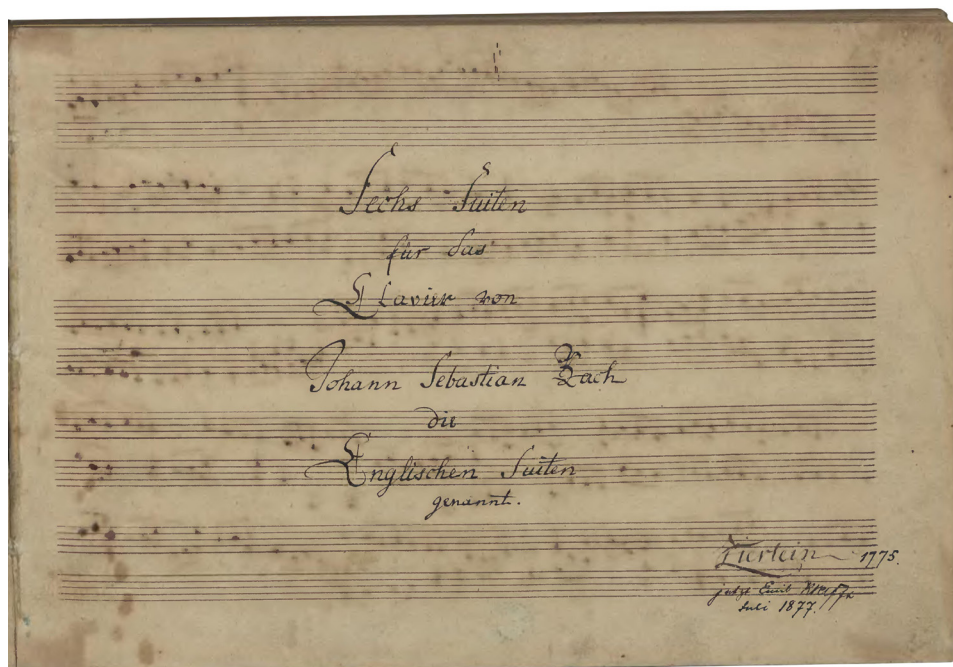 Sechs Suiten
für das
Clavier von
Johann Sebastian Bach
die
Englischen Suiten
genannt.
1775.
jetzt Emil
Juli 1877.